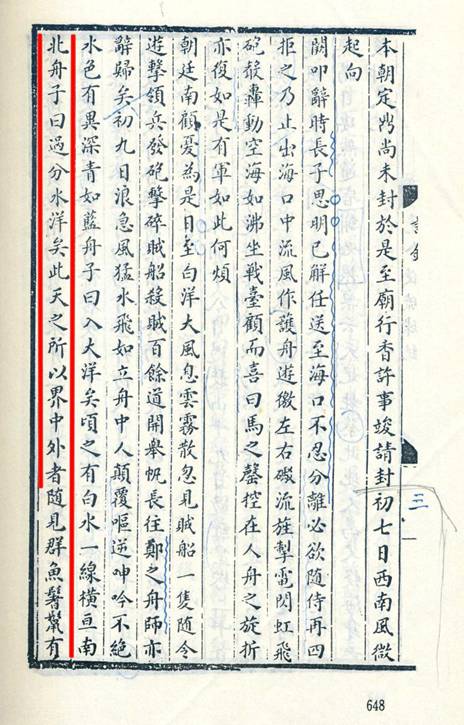 本朝定鼎尚未封於是至廟行香許事竣請封初七日西南風微
起向
闕叩辭時長子思明已解任送至海口不忍分離必欲隨侍再四
拒之乃止出海口中流風作護舟遊徼左右礟流旌掣電閃虹飛
砲殽轟動空海如沸坐戰臺顧而喜曰馬之罄控在人舟之旋折
亦復如是有軍如此何煩
朝廷南顧憂為是日至白洋大風息雲霧散忽見賊船一隻隨令
遊擊領兵發砲擊碎賊船殺賊百餘道開舉帆長往鄭之舟師亦
辭歸矣初九日浪急風猛水飛如立舟中人顛覆嘔逆呻吟不絕
水色有異深青如藍舟子曰入大洋矣頃之有白水一線橫亘南
北舟子曰過分水洋矣此天之所以界中外者隨見群魚鬐鬣有
三
648